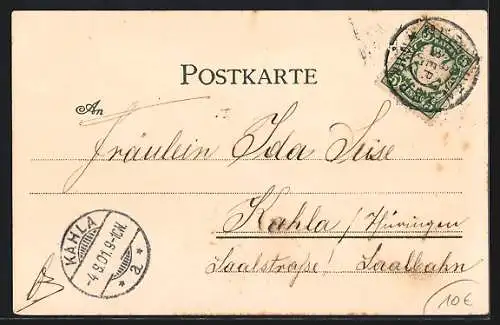 POSTKARTE
An
Fräulein Ida Seise
Kahla / Thüringen
Saalstraße! Saalbahn
KAHLA
-4.9.01.9-10V.
* a *
10€